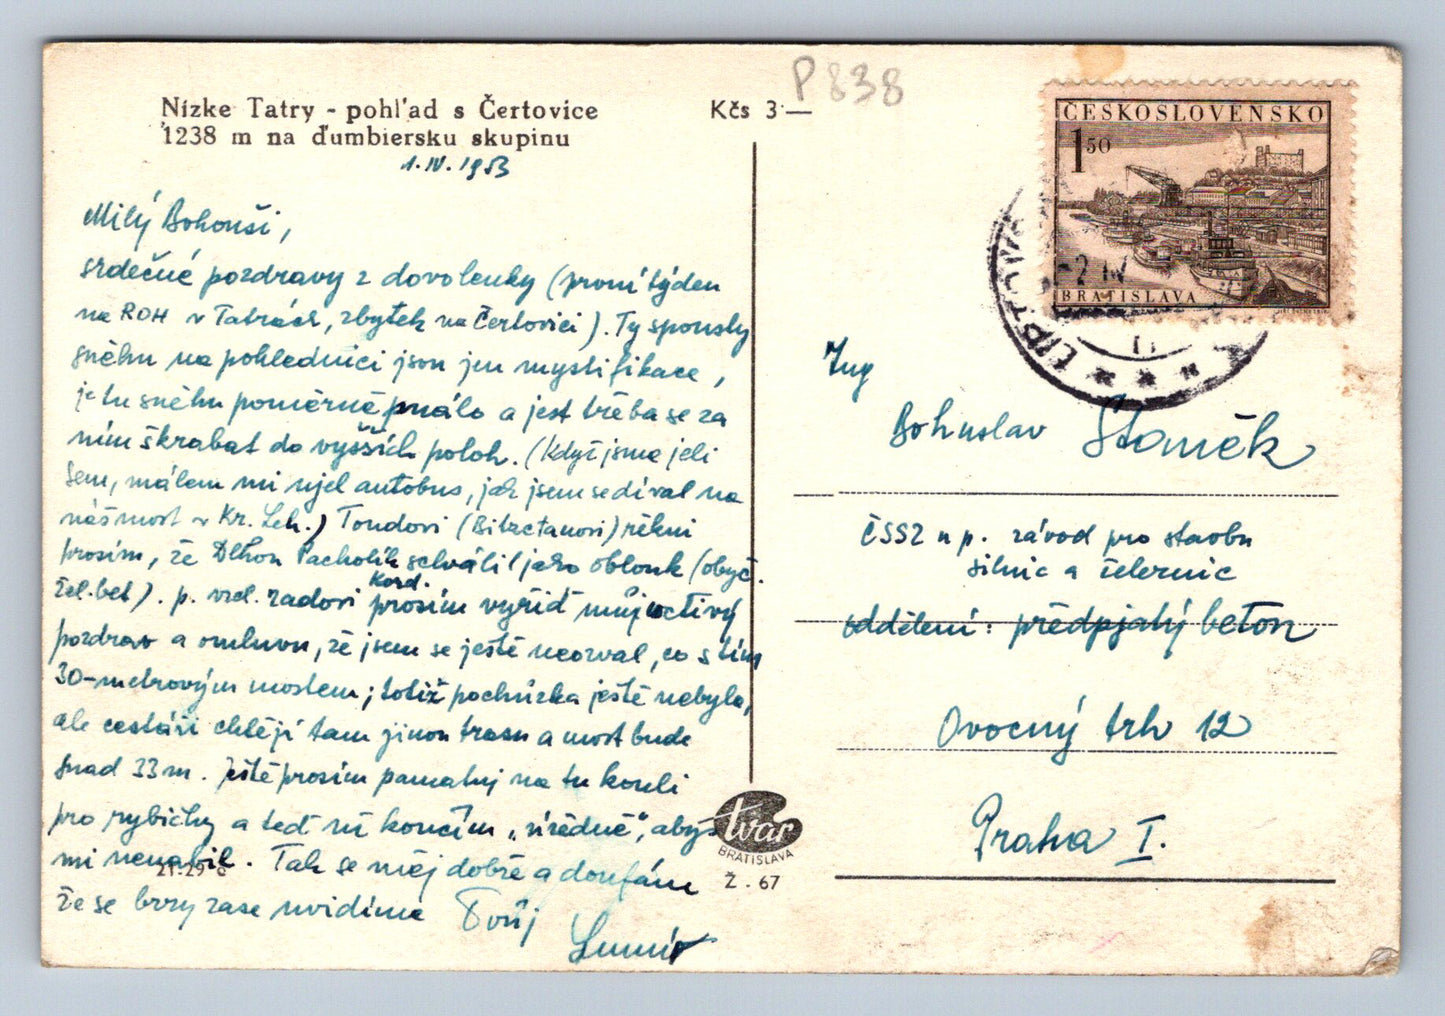 P 838
Nízke Tatry - pohľad s Čertovice
1238 m na ďumbiersku skupinu
Kčs 3·—
1. IV. 1953
Milý Bohouši,
srdečné pozdravy z dovolenky (první týden
na ROH v Tatrách, zbytek na Čertovici). Ty spousty
sněhu na pohlednici jsou jen mystifikace,
je tu sněhu poměrně málo a jest třeba se za
ním škrabat do vyšších poloh. (Když jsme jeli
sem, málem mi ujel autobus, jak jsem se díval na
náš most v Kr. Leh.) Tondovi řekni
prosím, že Dlhoň Pacholík schválil jako oblouk (obyč.
žel. bet). p. vrch. radovi Kord. prosím vyřiď můj uctivý
pozdrav a omluvu, že jsem se ještě neozval, co s tím
30-metrovým mostem; totiž pochůzka ještě nebyla,
ale cestáři chtějí tam jinou trasu a most bude
snad 33 m. Ještě prosím pamatuj na tu kouli
pro rybičky a teď už končím „úředně“, abys
mi nenabil. Tak se měj dobře a doufám
že se brzy zase uvidíme Tvůj
Lumír
21-29
tvar
BRATISLAVA
Ž. 67
ČESKOSLOVENSKO
1 50
BRATISLAVA
LIPTOVS
-2 IV
Ing
Bohuslav Staněk
ČSSZ n p. závod pro stavbu
silnic a železnic
oddělení: předpjatý beton
Ovocný trh 12
Praha I.